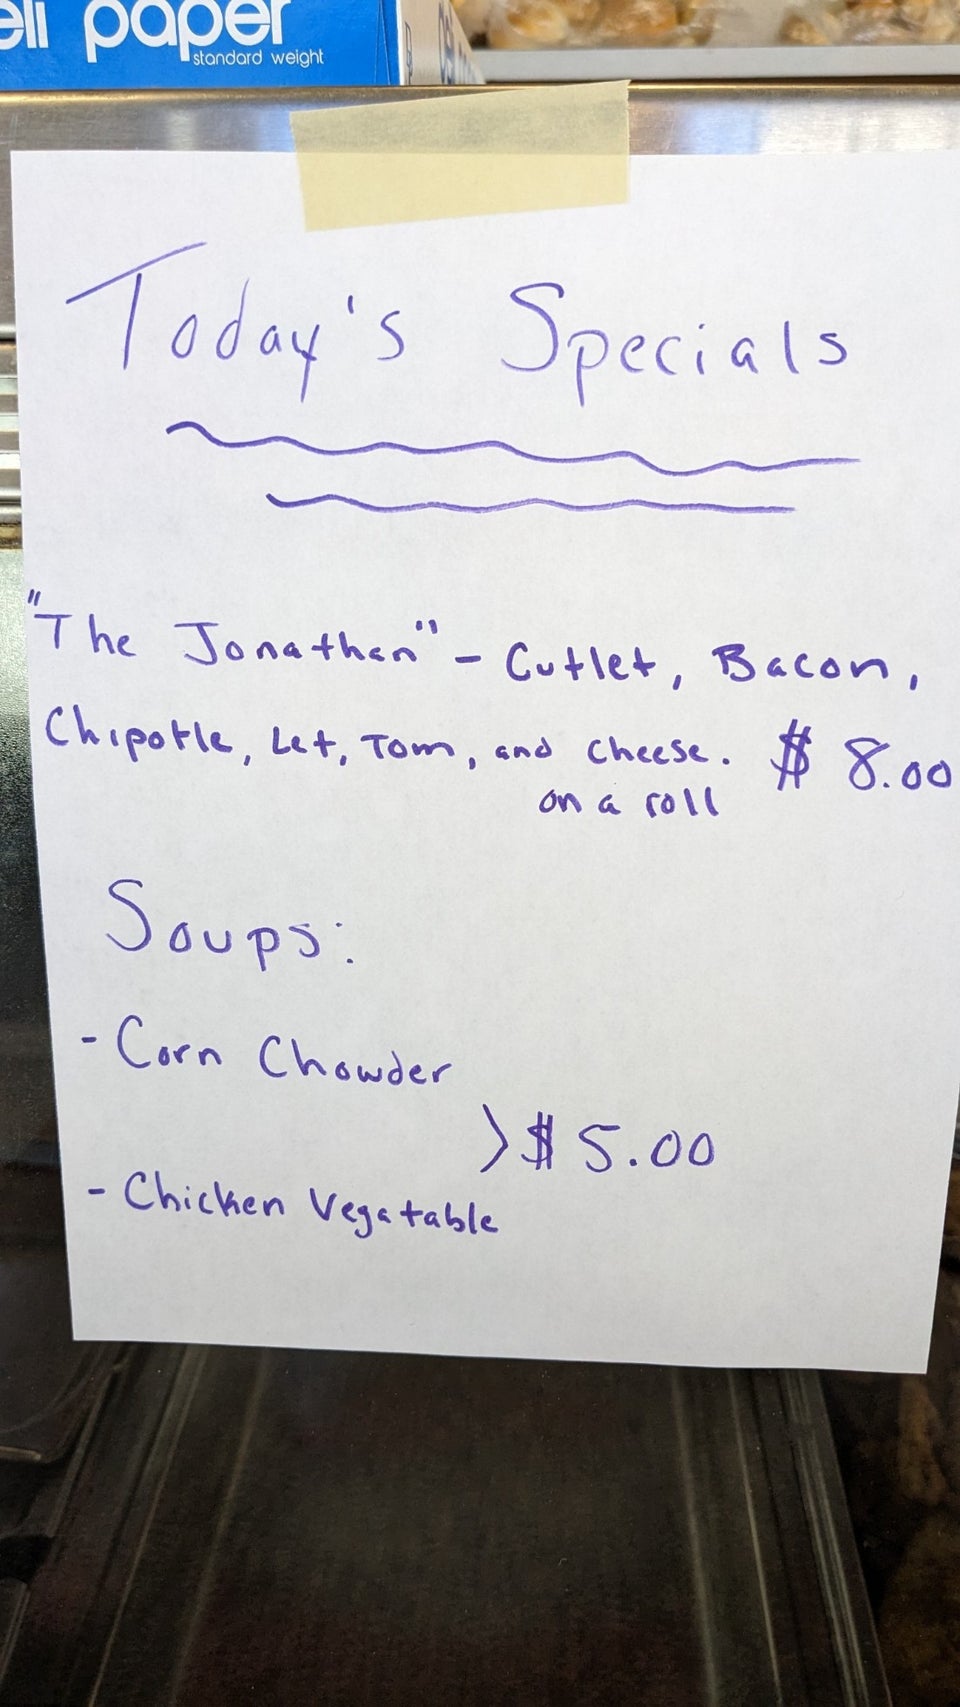 eli paper
standard weight
Today's Specials
"The Jonathan" - Cutlet, Bacon,
Chipotle, Let, Tom, and cheese. $ 8.00
on a roll
Soups:
- Corn Chowder
>$ 5.00
- Chicken Vegatable